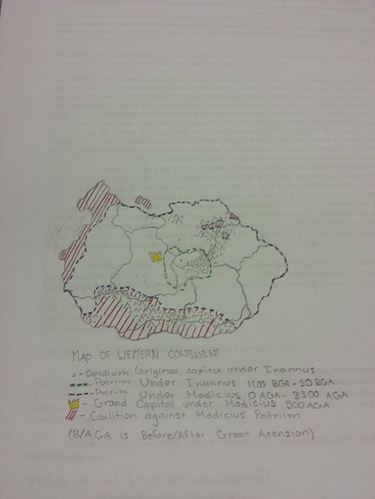 MAP OF WESTERN CONTINENT
- Opidium (original capitol under Inannus
- Patriim Under Inannus 1200 BGA - 20 BGA
- Patriim Under Modicius 0 AGA - 3300 AGA
- Grand Capitol under Modicius 500 AGA
- Coalition against Modicius Patriim
(B/AGA is Before/After Great Acension)